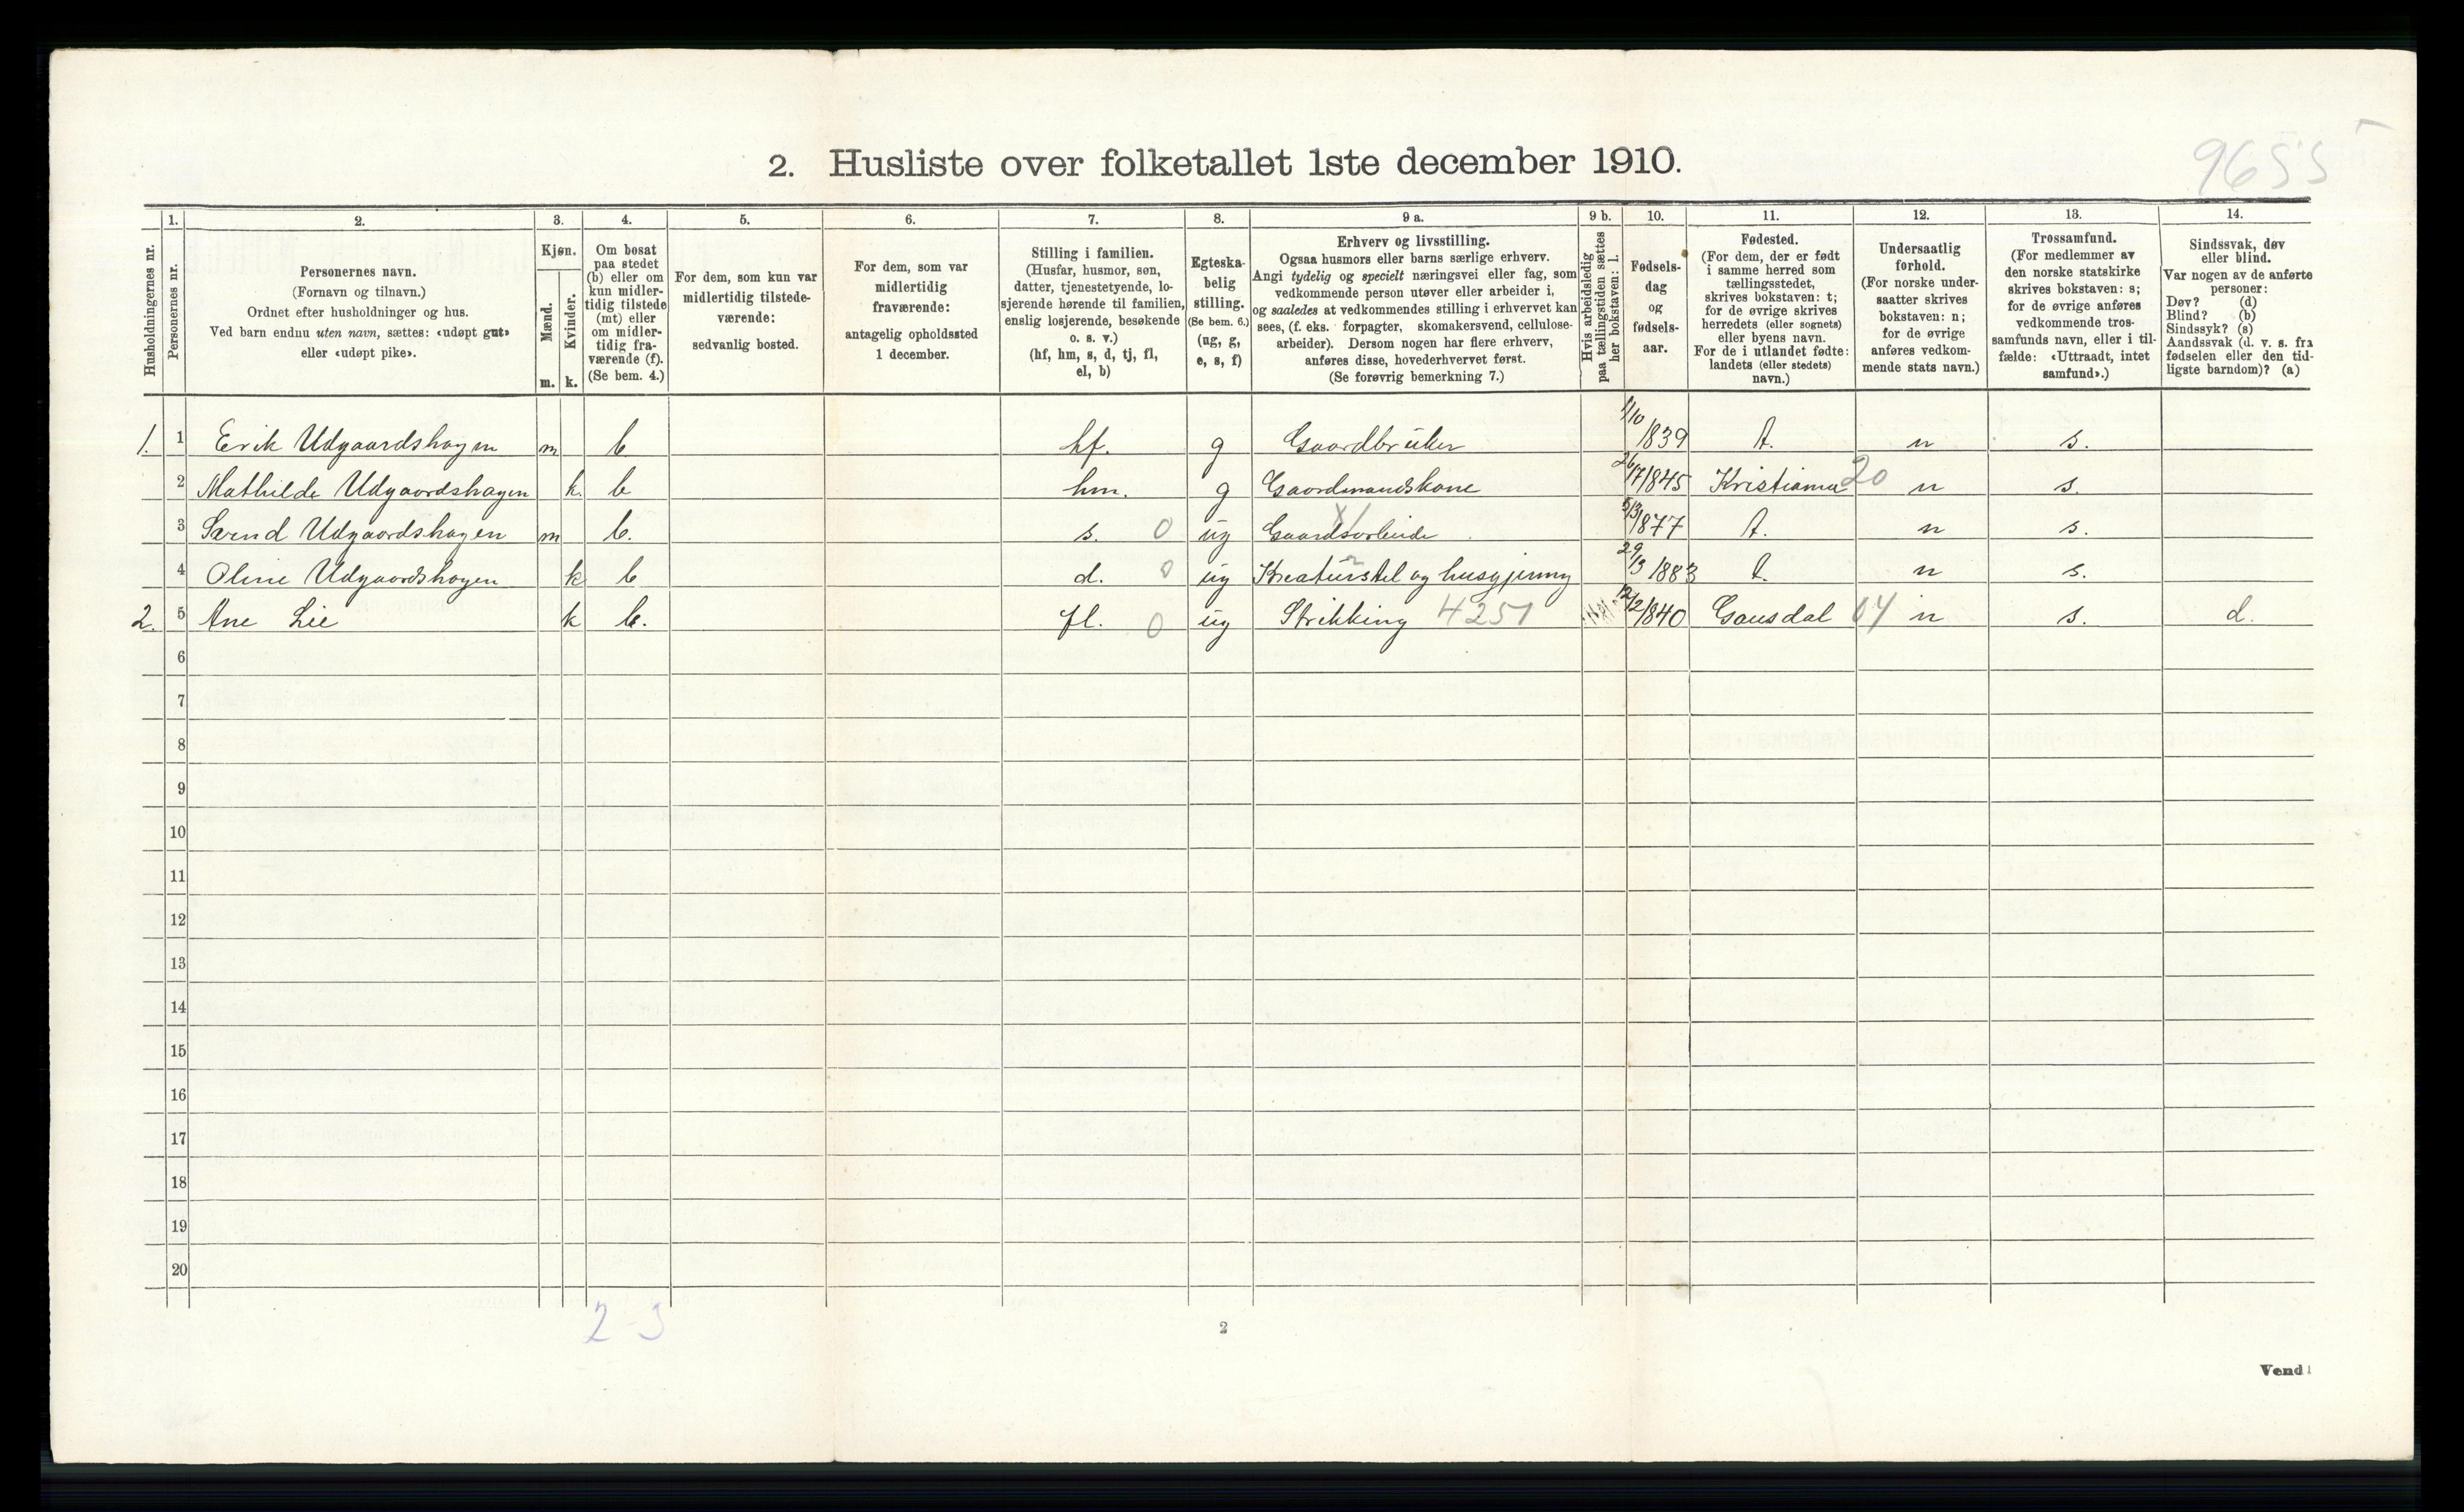 9655
2. Husliste over folketallet 1ste december 1910.
1. 2. 3. 4. 5. 6. 7. 8. 9 a. 9 b. 10. 11. 12. 13. 14.
Husholdningernes nr.
Personernes nr.
Personernes navn.
(Fornavn og tilnavn.)
Ordnet efter husholdninger og hus.
Ved barn endnu uten navn, sættes: «udøpt gut»
eller «udøpt pike».
Kjøn.
Mænd.
Kvinder.
m. k.
Om bosat
paa stedet
(b) eller om
kun midler-
tidig tilstede
(mt) eller
om midler-
tidig fra-
værende (f).
(Se bem. 4.)
For dem, som kun var
midlertidig tilstede-
værende:
sedvanlig bosted.
For dem, som var
midlertidig
fraværende:
antagelig opholdssted
1 december.
Stilling i familien.
(Husfar, husmor, søn,
datter, tjenestetyende, lo-
sjerende hørende til familien,
enslig losjerende, besøkende
o. s. v.)
(hf, hm, s, d, tj, fl,
el, b)
Egteska-
belig
stilling.
(Se bem. 6.)
(ug, g,
e, s, f)
Erhverv og livsstilling.
Ogsaa husmors eller barns særlige erhverv.
Angi tydelig og specielt næringsvei eller fag, som
vedkommende person utøver eller arbeider i,
og saaledes at vedkommendes stilling i erhvervet kan
sees, (f. eks. forpagter, skomakersvend, cellulose-
arbeider). Dersom nogen har flere erhverv,
anføres disse, hovederhvervet først.
(Se forøvrig bemerkning 7.)
Hvis arbeidsledig
paa tællingstiden sættes
her bokstaven: l.
Fødsels-
dag
og
fødsels-
aar.
Fødested.
(For dem, der er født
i samme herred som
tællingsstedet,
skrives bokstaven: t;
for de øvrige skrives
herredets (eller sognets)
eller byens navn.
For de i utlandet fødte:
landets (eller stedets)
navn.)
Undersaatlig
forhold.
(For norske under-
saatter skrives
bokstaven: n;
for de øvrige
anføres vedkom-
mende stats navn.)
Trossamfund.
(For medlemmer av
den norske statskirke
skrives bokstaven: s;
for de øvrige anføres
vedkommende tros-
samfunds navn, eller i til-
fælde: «Uttraadt, intet
samfund».)
Sindssvak, døv
eller blind.
Var nogen av de anførte
personer:
Døv? (d)
Blind? (b)
Sindssyk? (s)
Aandssvak (d. v. s. fra
fødselen eller den tid-
ligste barndom)? (a)
1. 1 Erik Udgaardshagen m b hf. g Gaardbruker 1/10 1839 t. n s.
2 Mathilde Udgaardshagen k. b hm. g Gaardmandskone 26/7 1845 Kristiania 20 n s.
3 Svend Udgaardshagen m b. s. 0 ug Gaardsarbeide 5/3 1877 t. n s.
4 Oline Udgaardshagen k b d. 0 ug Kreaturstel og husgjerning 29/3 1883 t. n s.
2. 5 Ane Lie k b. fl. 0 ug Strikking 4251 12/2 1840 Gausdal 04 n s. d.
6
7
8
9
10
11
12
13
14
15
16
17
18
19
20
2-3
2
Vend!